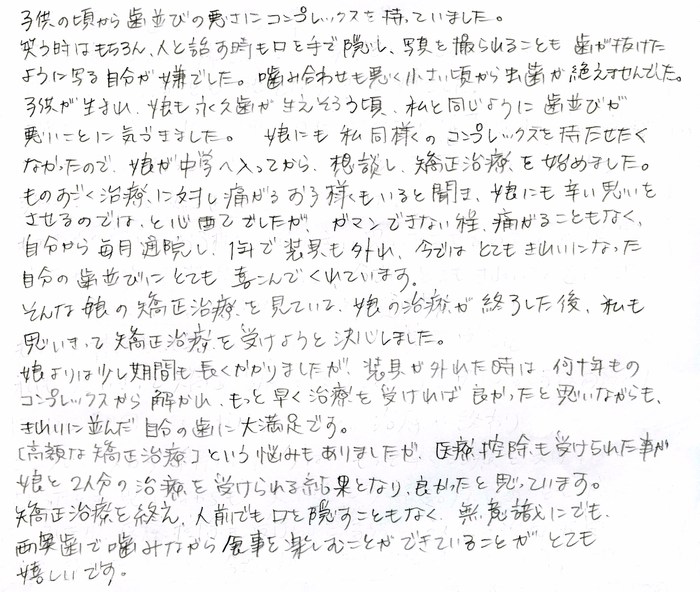 子供の頃から歯並びの悪さにコンプレックスを持っていました。
笑う時はもちろん、人と話す時も口を手で隠し、写真を撮られることも歯が抜けた
ように写る自分が嫌でした。噛み合わせも悪く小さい頃から虫歯が絶えませんでした。
子供が生まれ、娘も永久歯が生えそろう頃、私と同じように歯並びが
悪いことに気づきました。娘にも私同様のコンプレックスを持たせたく
なかったので、娘が中学へ入ってから、相談し、矯正治療を始めました。
ものすごく治療に対し痛がるお子様もいると聞き、娘にも辛い思いを
させるのでは、と心配でしたが、ガマンできない程、痛がることもなく、
自分から毎月通院し、1年で装具も外れ、今ではとてもきれいになった
自分の歯並びにとても喜こんでくれています。
そんな娘の矯正治療を見ていて、娘の治療が終了した後、私も
思いきって矯正治療を受けようと決心しました。
娘よりは少し期間も長くかかりましたが、装具が外れた時は、何十年もの
コンプレックスから解かれ、もっと早く治療を受ければ良かったと思いながらも、
きれいに並んだ自分の歯に大満足です。
「高額な矯正治療」という悩みもありましたが、医療控除も受けられた事が
娘と2人分の治療を受けられる結果となり、良かったと思っています。
矯正治療を終え、人前でも口を隠すこともなく、無意識にでも、
両奥歯で噛みながら食事を楽しむことができていることがとても
嬉しいです。